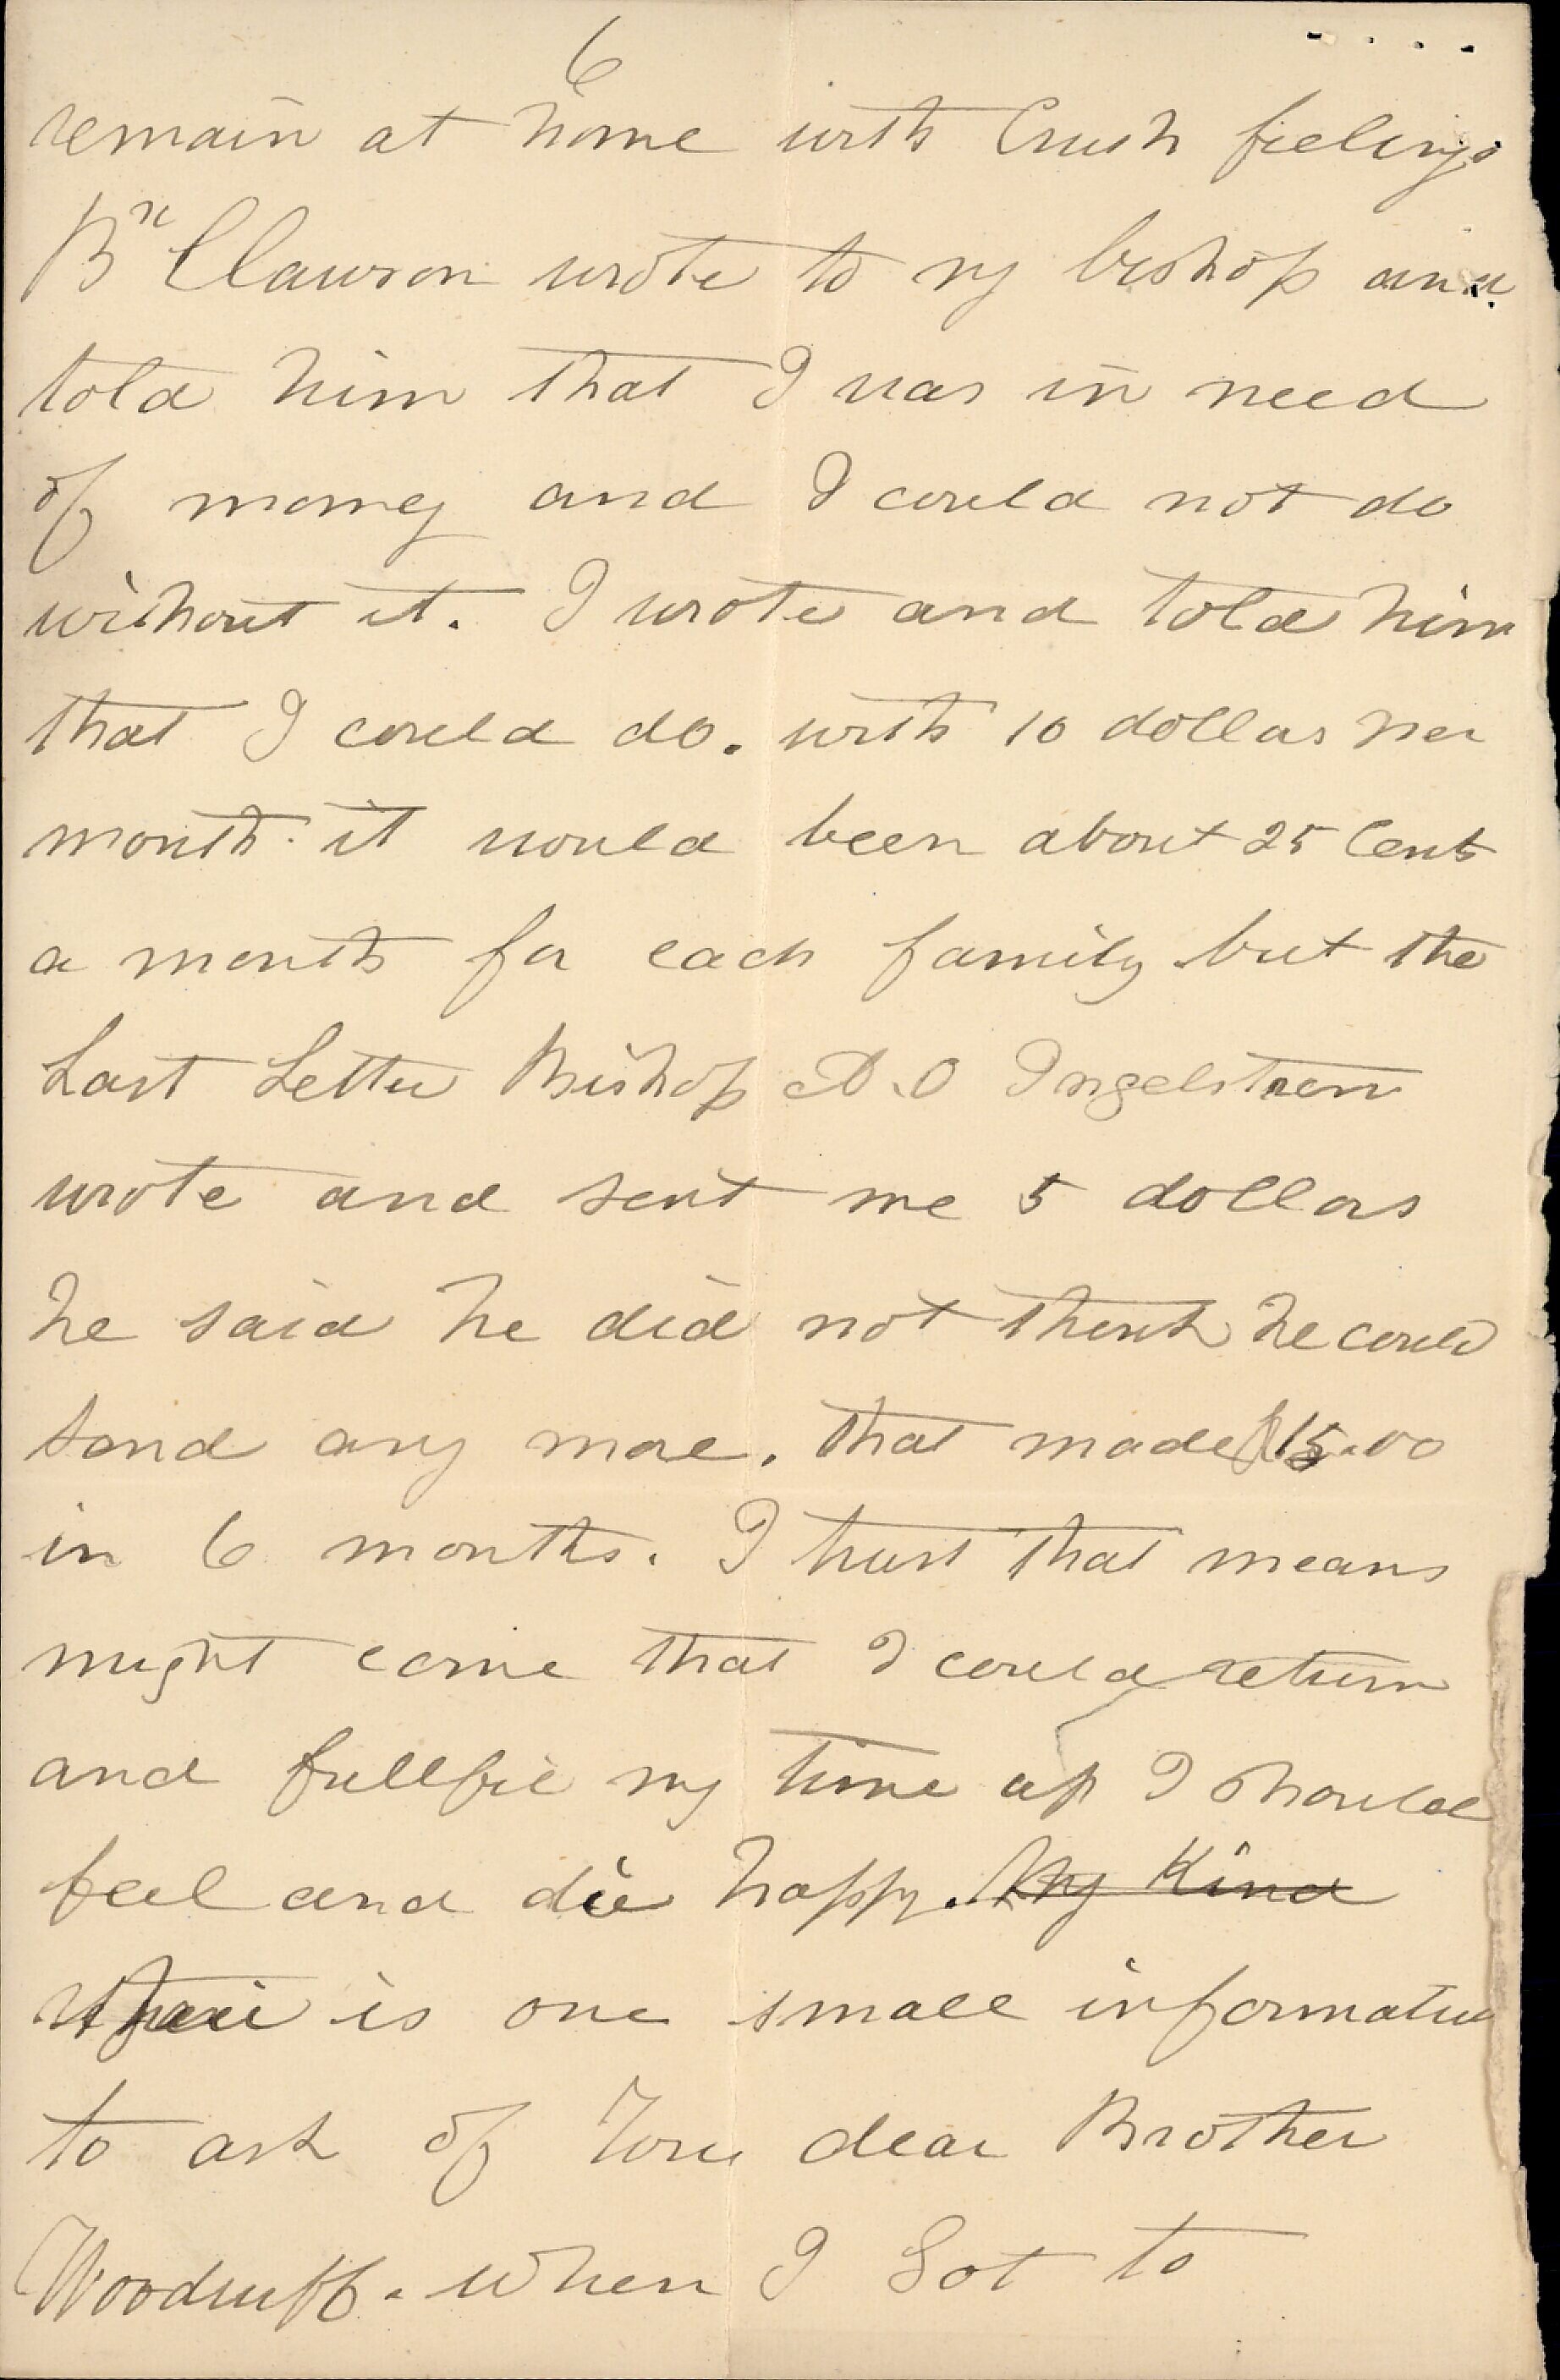 6
remain at home with Crush fielings
Br Clawson wrote to my bishop and
told him that I was in need
of money and I could not do
without it. I wrote and told him
that I could do. with 10 dollas per
month. it would been about 25 Cents
a month for each family but the
Last Letter Bishop A. O Ingelstrem
wrote and sent me 5 dollars
he said he did not think he could
send any more. that made $15.00
in 6 months. I trust that means
might come that I could return
and fullfil my time up I should
feel and die happy. My Kind
is one small information
to ask of You dear Brother
Woodruff. When I Got to